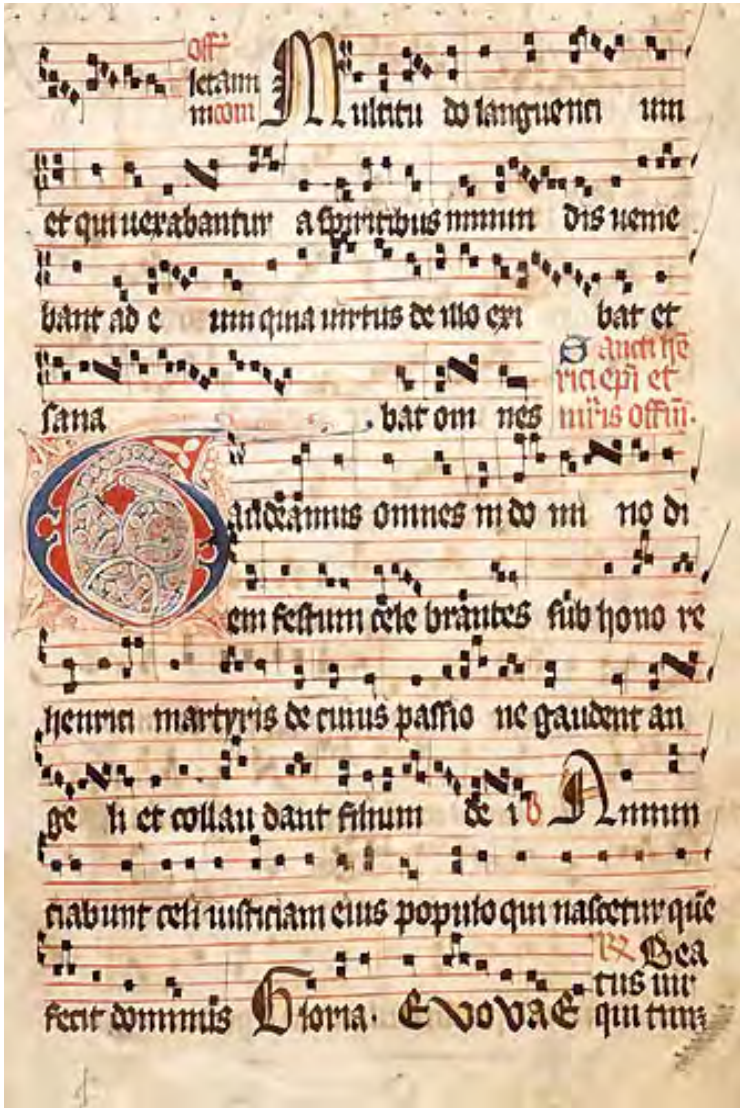 Off
letam
incom
Multitu do languenti um
et qui uexabantur a spiritibus inmun dis uenie
bant ad e um quia uirtus de illo exi bat et
sana bat om nes
Sancti he
rici epi et
mris offm.
Gaudeamus omnes in do mi no di
em festum cele brantes sub hono re
henrici martyris de cuius passio ne gaudent an
ge li et collau dant filium de i Annun
ciabunt celi iusticiam eius populo qui nascetur que
fecit dominus Gloria. EVOVAE
Bea
tus uir
qui tim